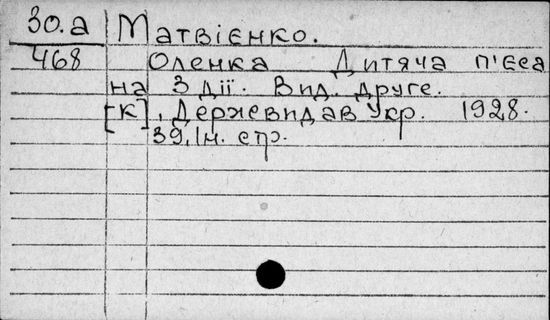 30.а Матвієнко.
468 Оленка Дитяча п'єса
на 3 дії. Вид. друге.
[К], Держвидав Укр. 1928.
39, Iн. стр.